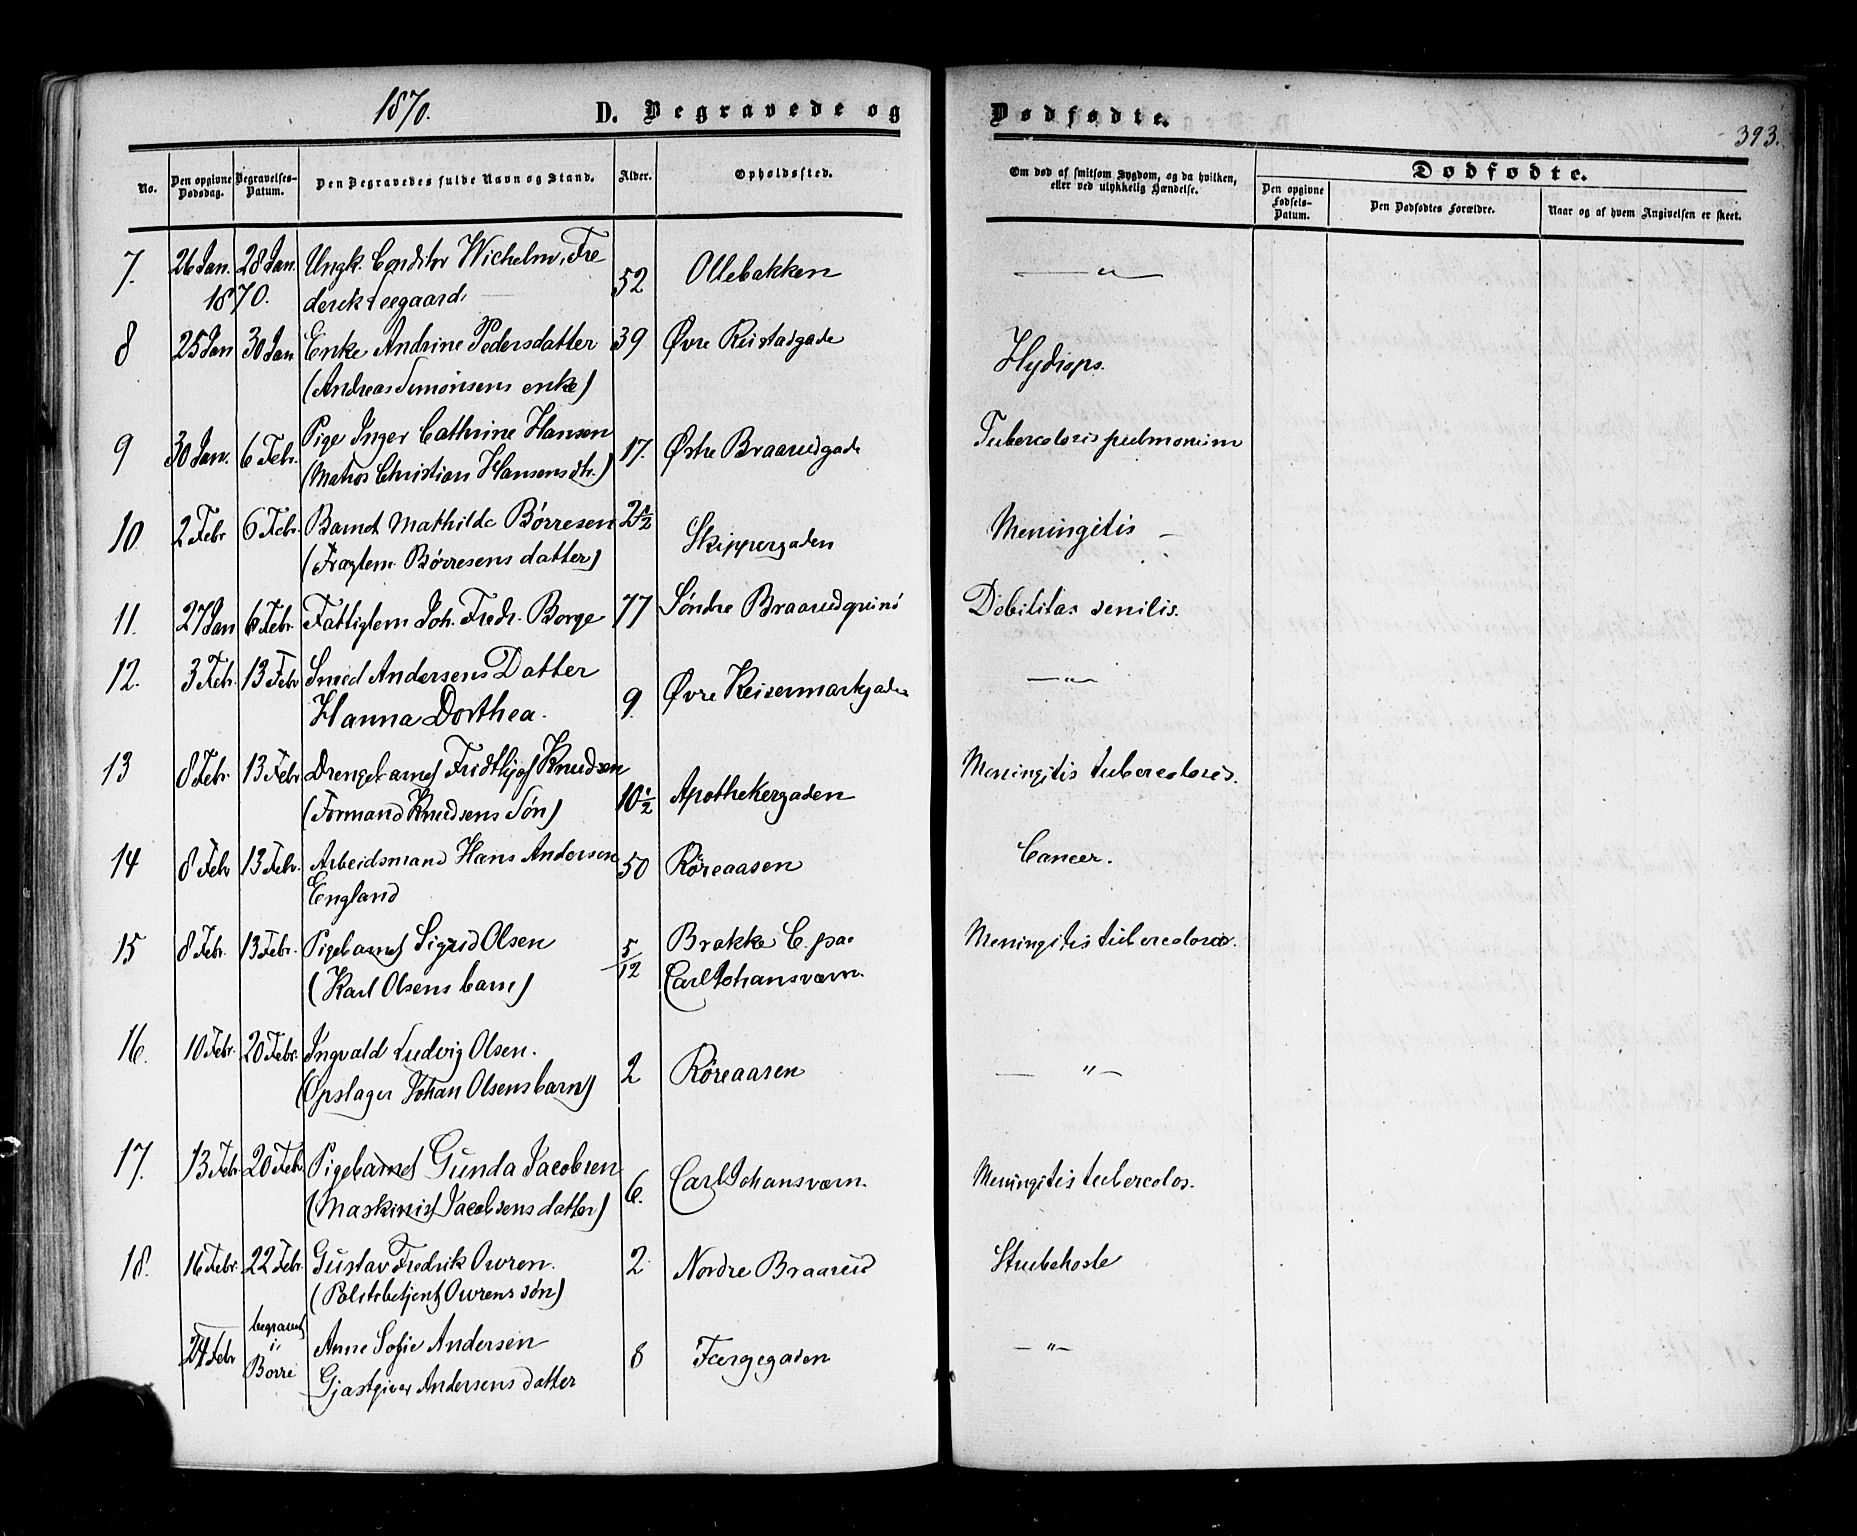 1870. D. Begravede og Dødfødte.
393.
No. Den opgivne Dødsdag. Begravelses-Datum. Den Begravedes fulde Navn og Stand. Alder. Opholdssted. Om død af smitsom Sygdom, og da hvilken, eller ved ulykkelig Hændelse. Dødfødte.
Den opgivne Fødsels-Datum. Den Dødfødtes Forældre. Naar og af hvem Angivelsen er skeet.
7. 26 Jan. 28 Jan. Ungk. Conditor Wichelm. Fre 52 Ollebakken — " —
1870. derek
8 25 Jan 30 Jan Enke Andrine Pedersdatter 39 Øvre Hydrops.
(Andreas Simonsens enke)
9 30 Jan. 6 Febr. Pige Inger Cathrine Hansen 17. Østre Braarudgade Tubercolosis pulmonum
(Matros Christian Hansens dtr.)
10 2 Febr 6 Febr. Barnet Mathilde Børresen 2 1/2 Skippergaden Meningitis —
(Fragtem. Børresens datter)
11. 27 Jan 6 Febr. Fattiglem Joh. Fredr. Borge 77 Søndre Braarudgrund Debilitas senilis.
12. 3 Febr. 13 Febr Smed Andersens Datter 9. Øvre Keisermarkgaden — " —
Hanna Dorthea.
13 8 Febr 13 Febr Drengebarnet Fridthjof Knudsen 10 1/2 Apothekergaden Meningitis tubercolosis.
(Formand Knudsens Søn)
14 8 Febr 13 Febr. Arbeidsmand Hans Andersen 50 Røreaasen Cancer.
England
15 8 Febr. 13 Febr. Pigebarnet Sigrid Olsen 5/12 Brakke C. paa Meningitis tubercolosa.
(Karl Olsens barn) Carl Johansværn.
16. 10 Febr. 20 Febr. Ingvald Ludvig Olsen. 2 Røreaasen — " —
(Opslager Johan Olsens barn)
17. 13 Febr. 20 Febr. Pigebarnet Gunda Jacobsen 6. Carl Johansværn. Meningitis tubercolos.
(Maskinist Jacobsens datter)
18. 16 Febr. 22 Febr. Gustav Fredrik Owren. 2 Nordre Braarud Strubehoste
(Politibetjent Owrens søn)
24 Febr begravet i Borre Anne Sofie Andersen 8 Færgegaden — " —
Gjæstgiver Andersens datter